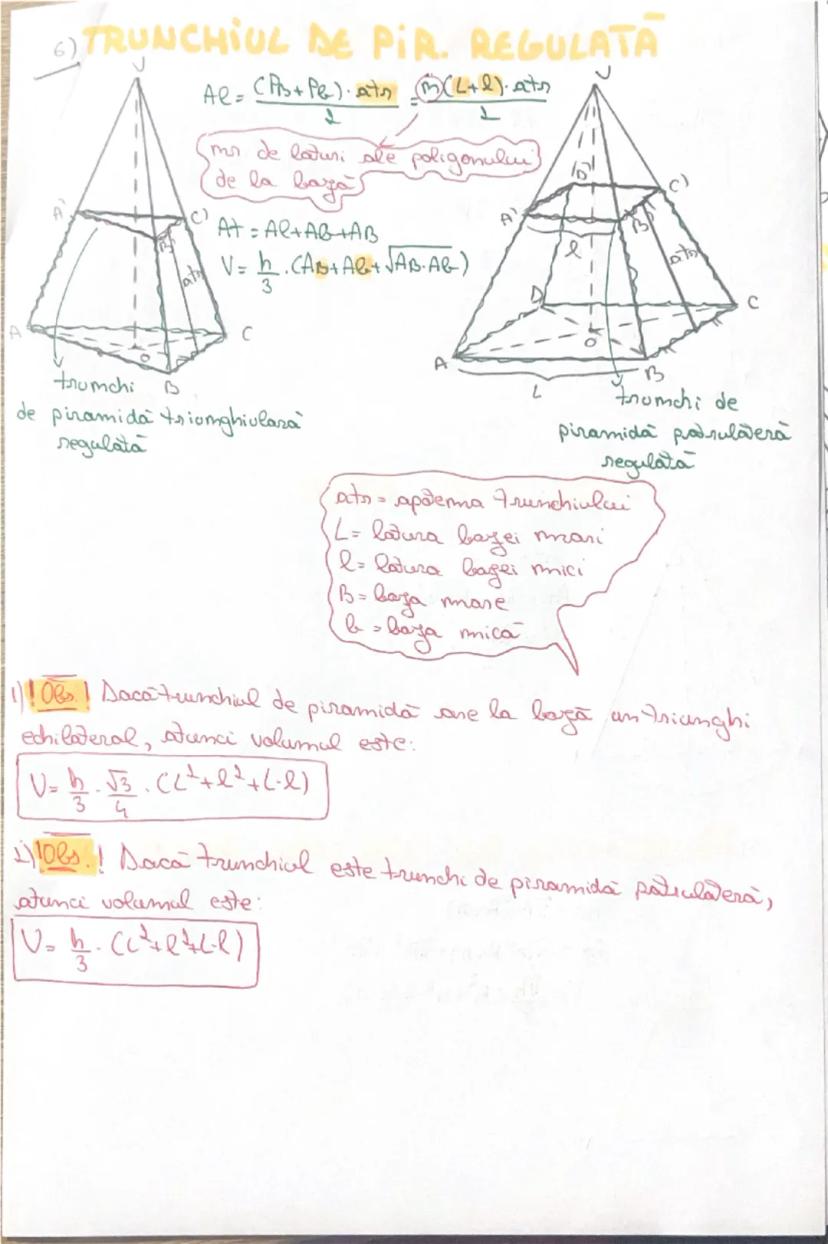 6) TRUNCHIUL DE PIR. REGULATĂ
V
Al = (PB+Pb)·atr / 2 = n(L+l)·atr / 2
nr de laturi ale poligonului
de la bază
At = Al+Ab+AB
V = h/3 · (AB+Ab+√AB·Ab)
A' C' B' atr
A C O B
trunchi
de piramidă triunghiulară
regulată
V
D' C' A' B' l atr
D C O A B L
trunchi de
piramidă patrulateră
regulată
atr = apotema trunchiului
L = latura bazei mari
l = latura bazei mici
B = baza mare
b = baza mică
1) ! Obs. ! Dacă trunchiul de piramidă are la bază un triunghi
echilateral, atunci volumul este:
V = h/3 · √3/4 · (L²+l²+L·l)
2) ! Obs. ! Dacă trunchiul este trunchi de piramidă patrulateră,
atunci volumul este:
V = h/3 · (L²+l²+L·l)